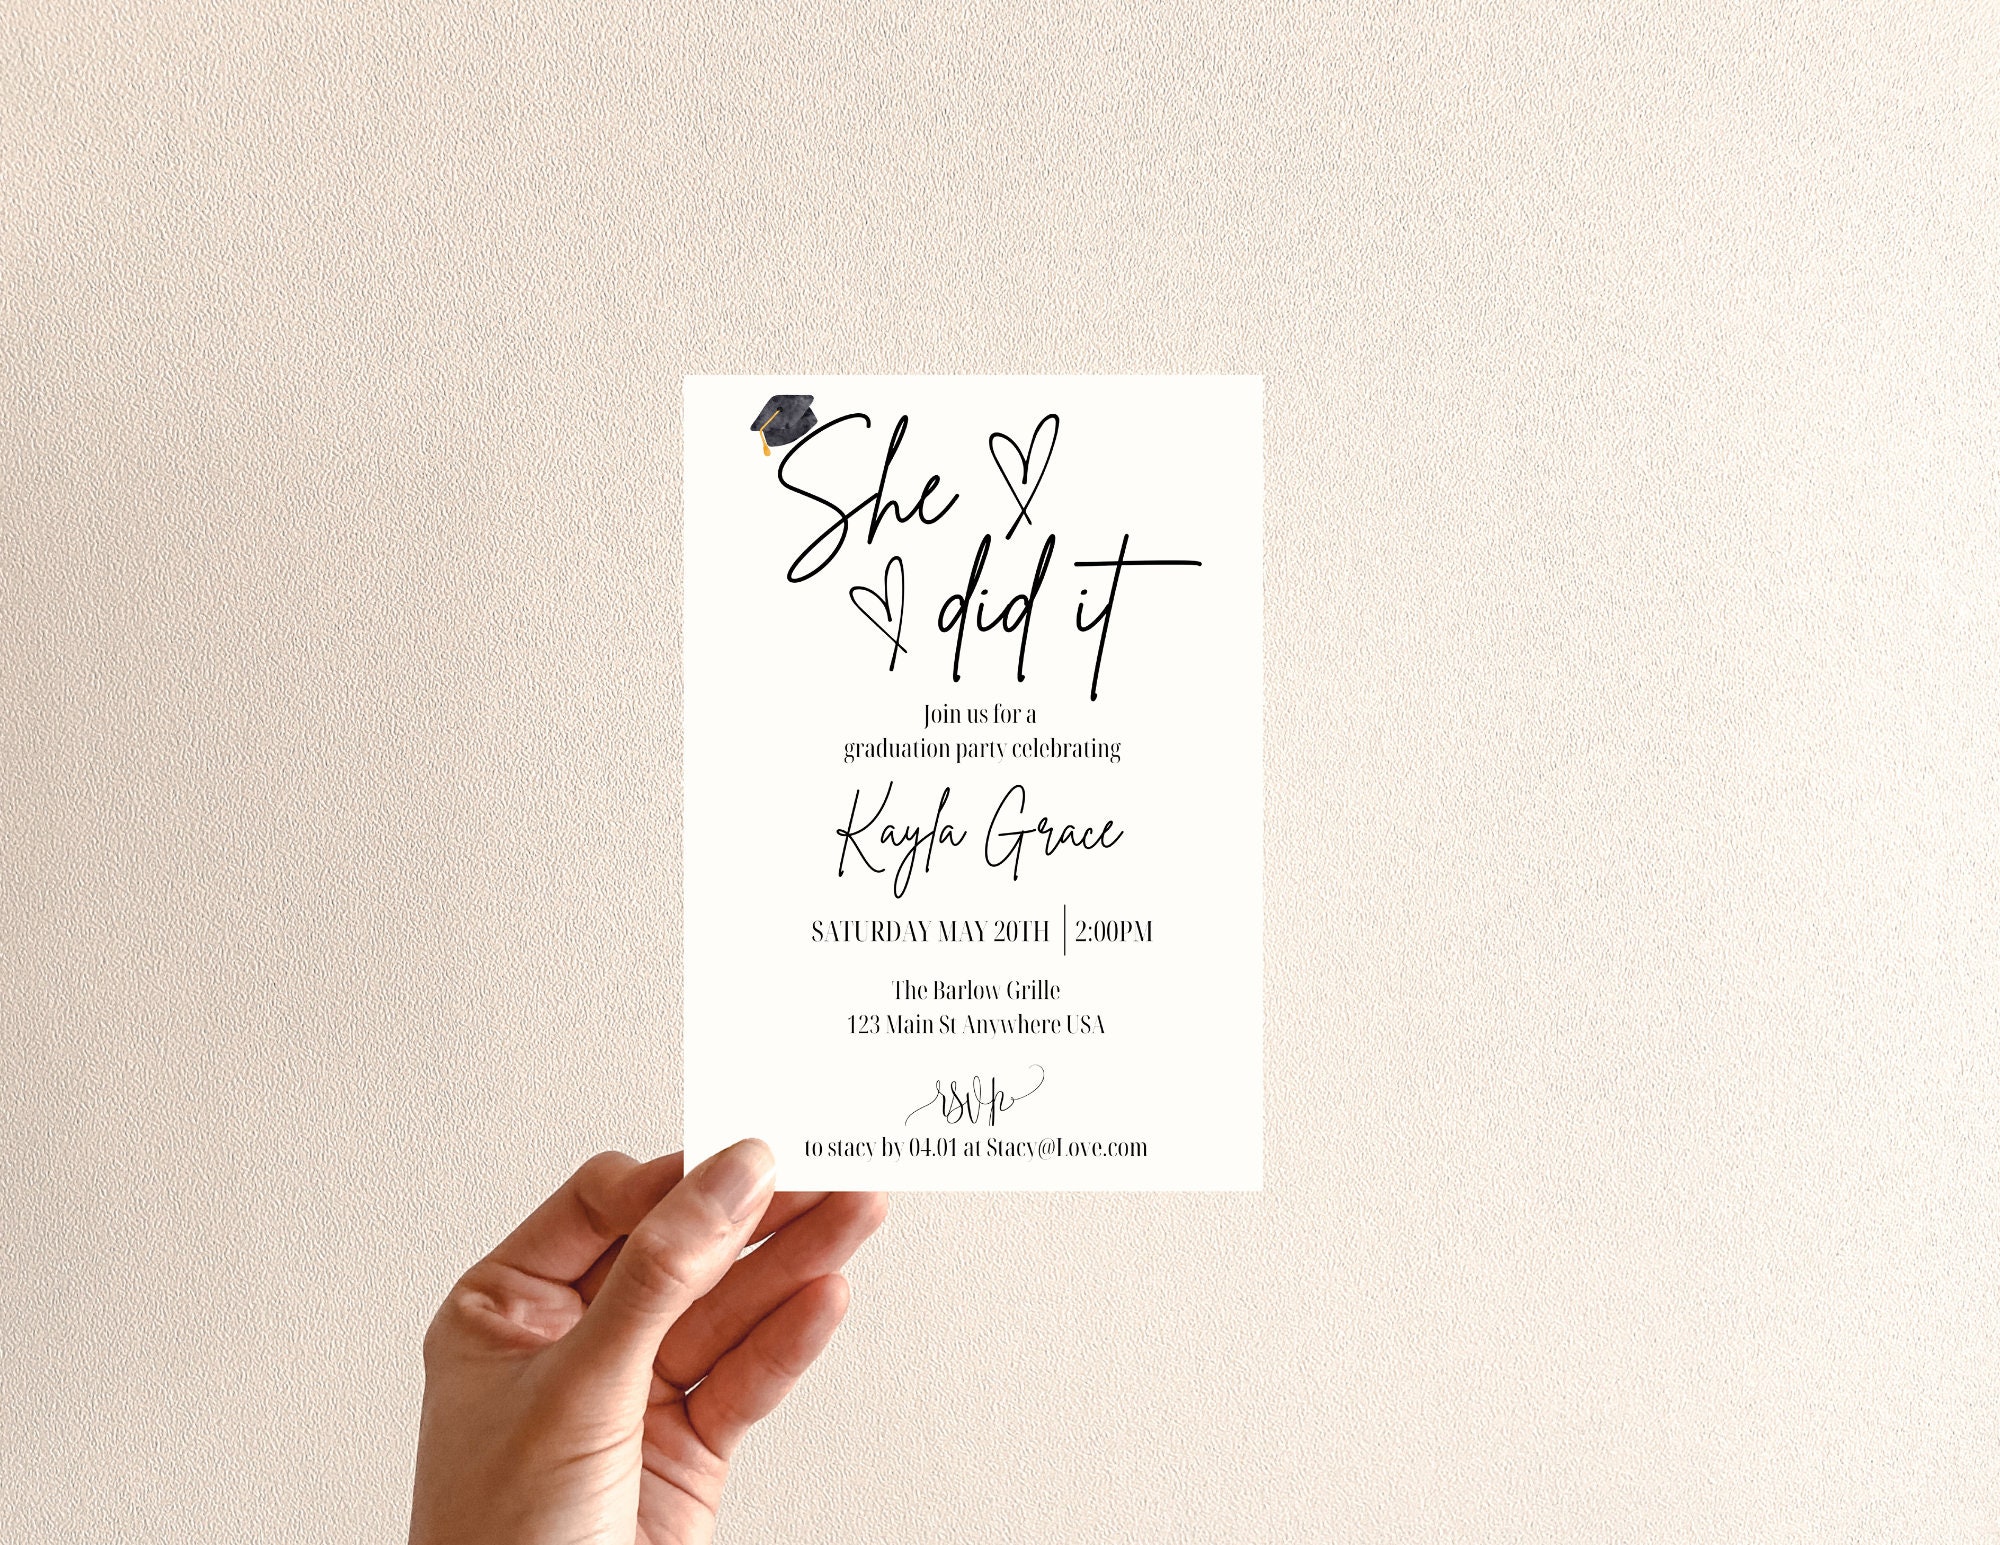 She
did it
Join us for a
graduation party celebrating
Kayla Grace
SATURDAY MAY 20TH | 2:00PM
The Barlow Grille
123 Main St Anywhere USA
rsvp
to stacy by 04.01 at Stacy@Love.com